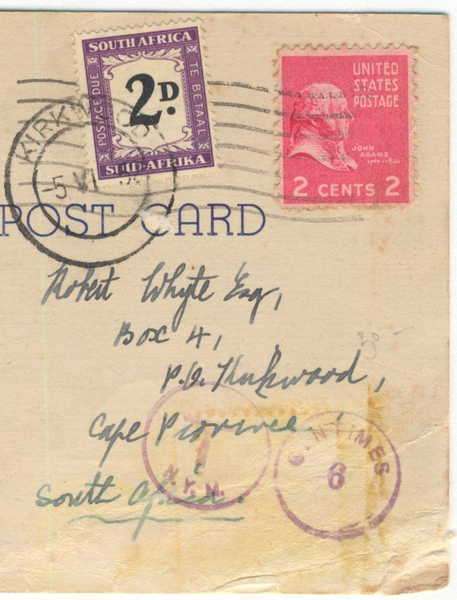 SOUTH AFRICA
POSTAGE DUE
2D.
TE BETAAL
SUID-AFRIKA
UNITED
STATES
POSTAGE
JOHN
ADAMS
2 CENTS 2
5 VI
POST CARD
Robert Whyte Esq,
Box 41,
P.O. Kirkwood,
Cape Province,
South Africa.
T
N.Y.
CENTIMES
6